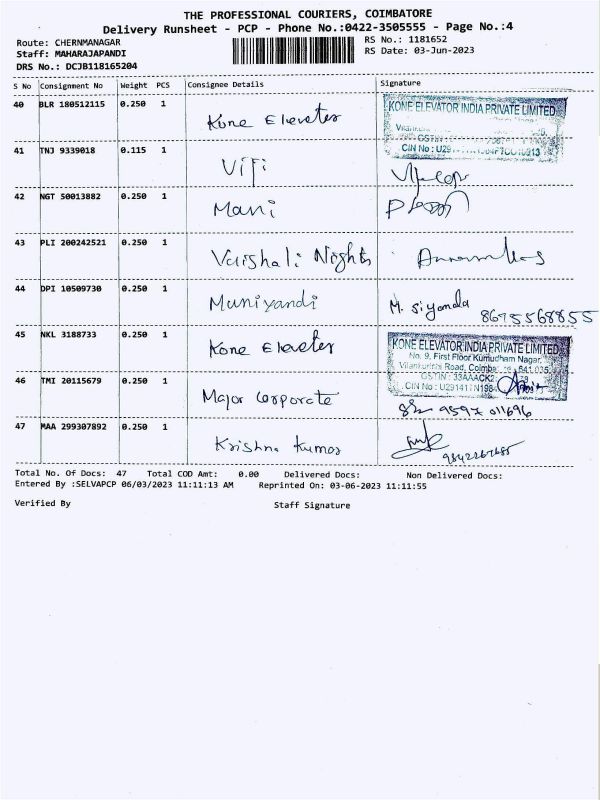 THE PROFESSIONAL COURIERS, COIMBATORE
Delivery Runsheet - PCP - Phone No.:0422-3505555 - Page No.:4
Route: CHERNMANAGAR RS No.: 1181652
Staff: MAHARAJAPANDI RS Date: 03-Jun-2023
DRS No.: DCJB118165204
S No Consignment No Weight PCS Consignee Details Signature
40 BLR 180512115 0.250 1 Kone Elevator
KONE ELEVATOR INDIA PRIVATE LIMITED
41 TNJ 9339018 0.115 1
42 NGT 50013882 0.250 1 Mani
43 PLI 200242521 0.250 1 Vaishali Nights
44 DPI 10509730 0.250 1 Muniyandi M. Siyanda 8675568855
45 NKL 3188733 0.250 1 Kone Elevator
KONE ELEVATOR INDIA PRIVATE LIMITED
No. 9, First Floor Kumudham Nagar,
Vilankurichi Road, Coimba 641 035
GSTIN : 33AAACK2
CIN No : U29141TN198
46 TMI 20115679 0.250 1 Major Corporate 9597 011696
47 MAA 299307892 0.250 1 Krishna Kumar
Total No. Of Docs: 47 Total COD Amt: 0.00 Delivered Docs: Non Delivered Docs:
Entered By :SELVAPCP 06/03/2023 11:11:13 AM Reprinted On: 03-06-2023 11:11:55
Verified By Staff Signature